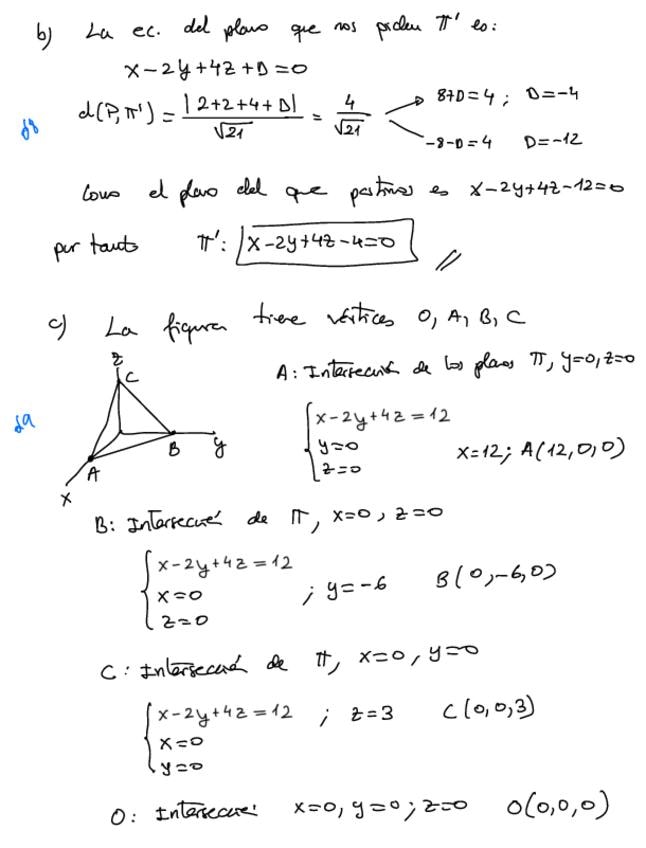 b) La ec. del plano que nos piden π' es:
x-2y+4z+D=0
d(P,π') = |2+2+4+D| / √21 = 4 / √21
8+D=4 ; D=-4
-8-D=4 D=-12
Como el plano del que partimos es x-2y+4z-12=0
por tanto π': x-2y+4z-4=0 //
c) La figura tiene vértices O, A, B, C
z
C
A: Intersección de los planos π, y=0, z=0
B y
A
x
x-2y+4z=12
y=0
z=0
x=12; A(12,0,0)
B: Intersección de π, x=0, z=0
x-2y+4z=12
x=0 ; y=-6 B(0,-6,0)
z=0
C: Intersección de π, x=0, y=0
x-2y+4z=12 ; z=3 C(0,0,3)
x=0
y=0
O: Intersección x=0, y=0; z=0 O(0,0,0)